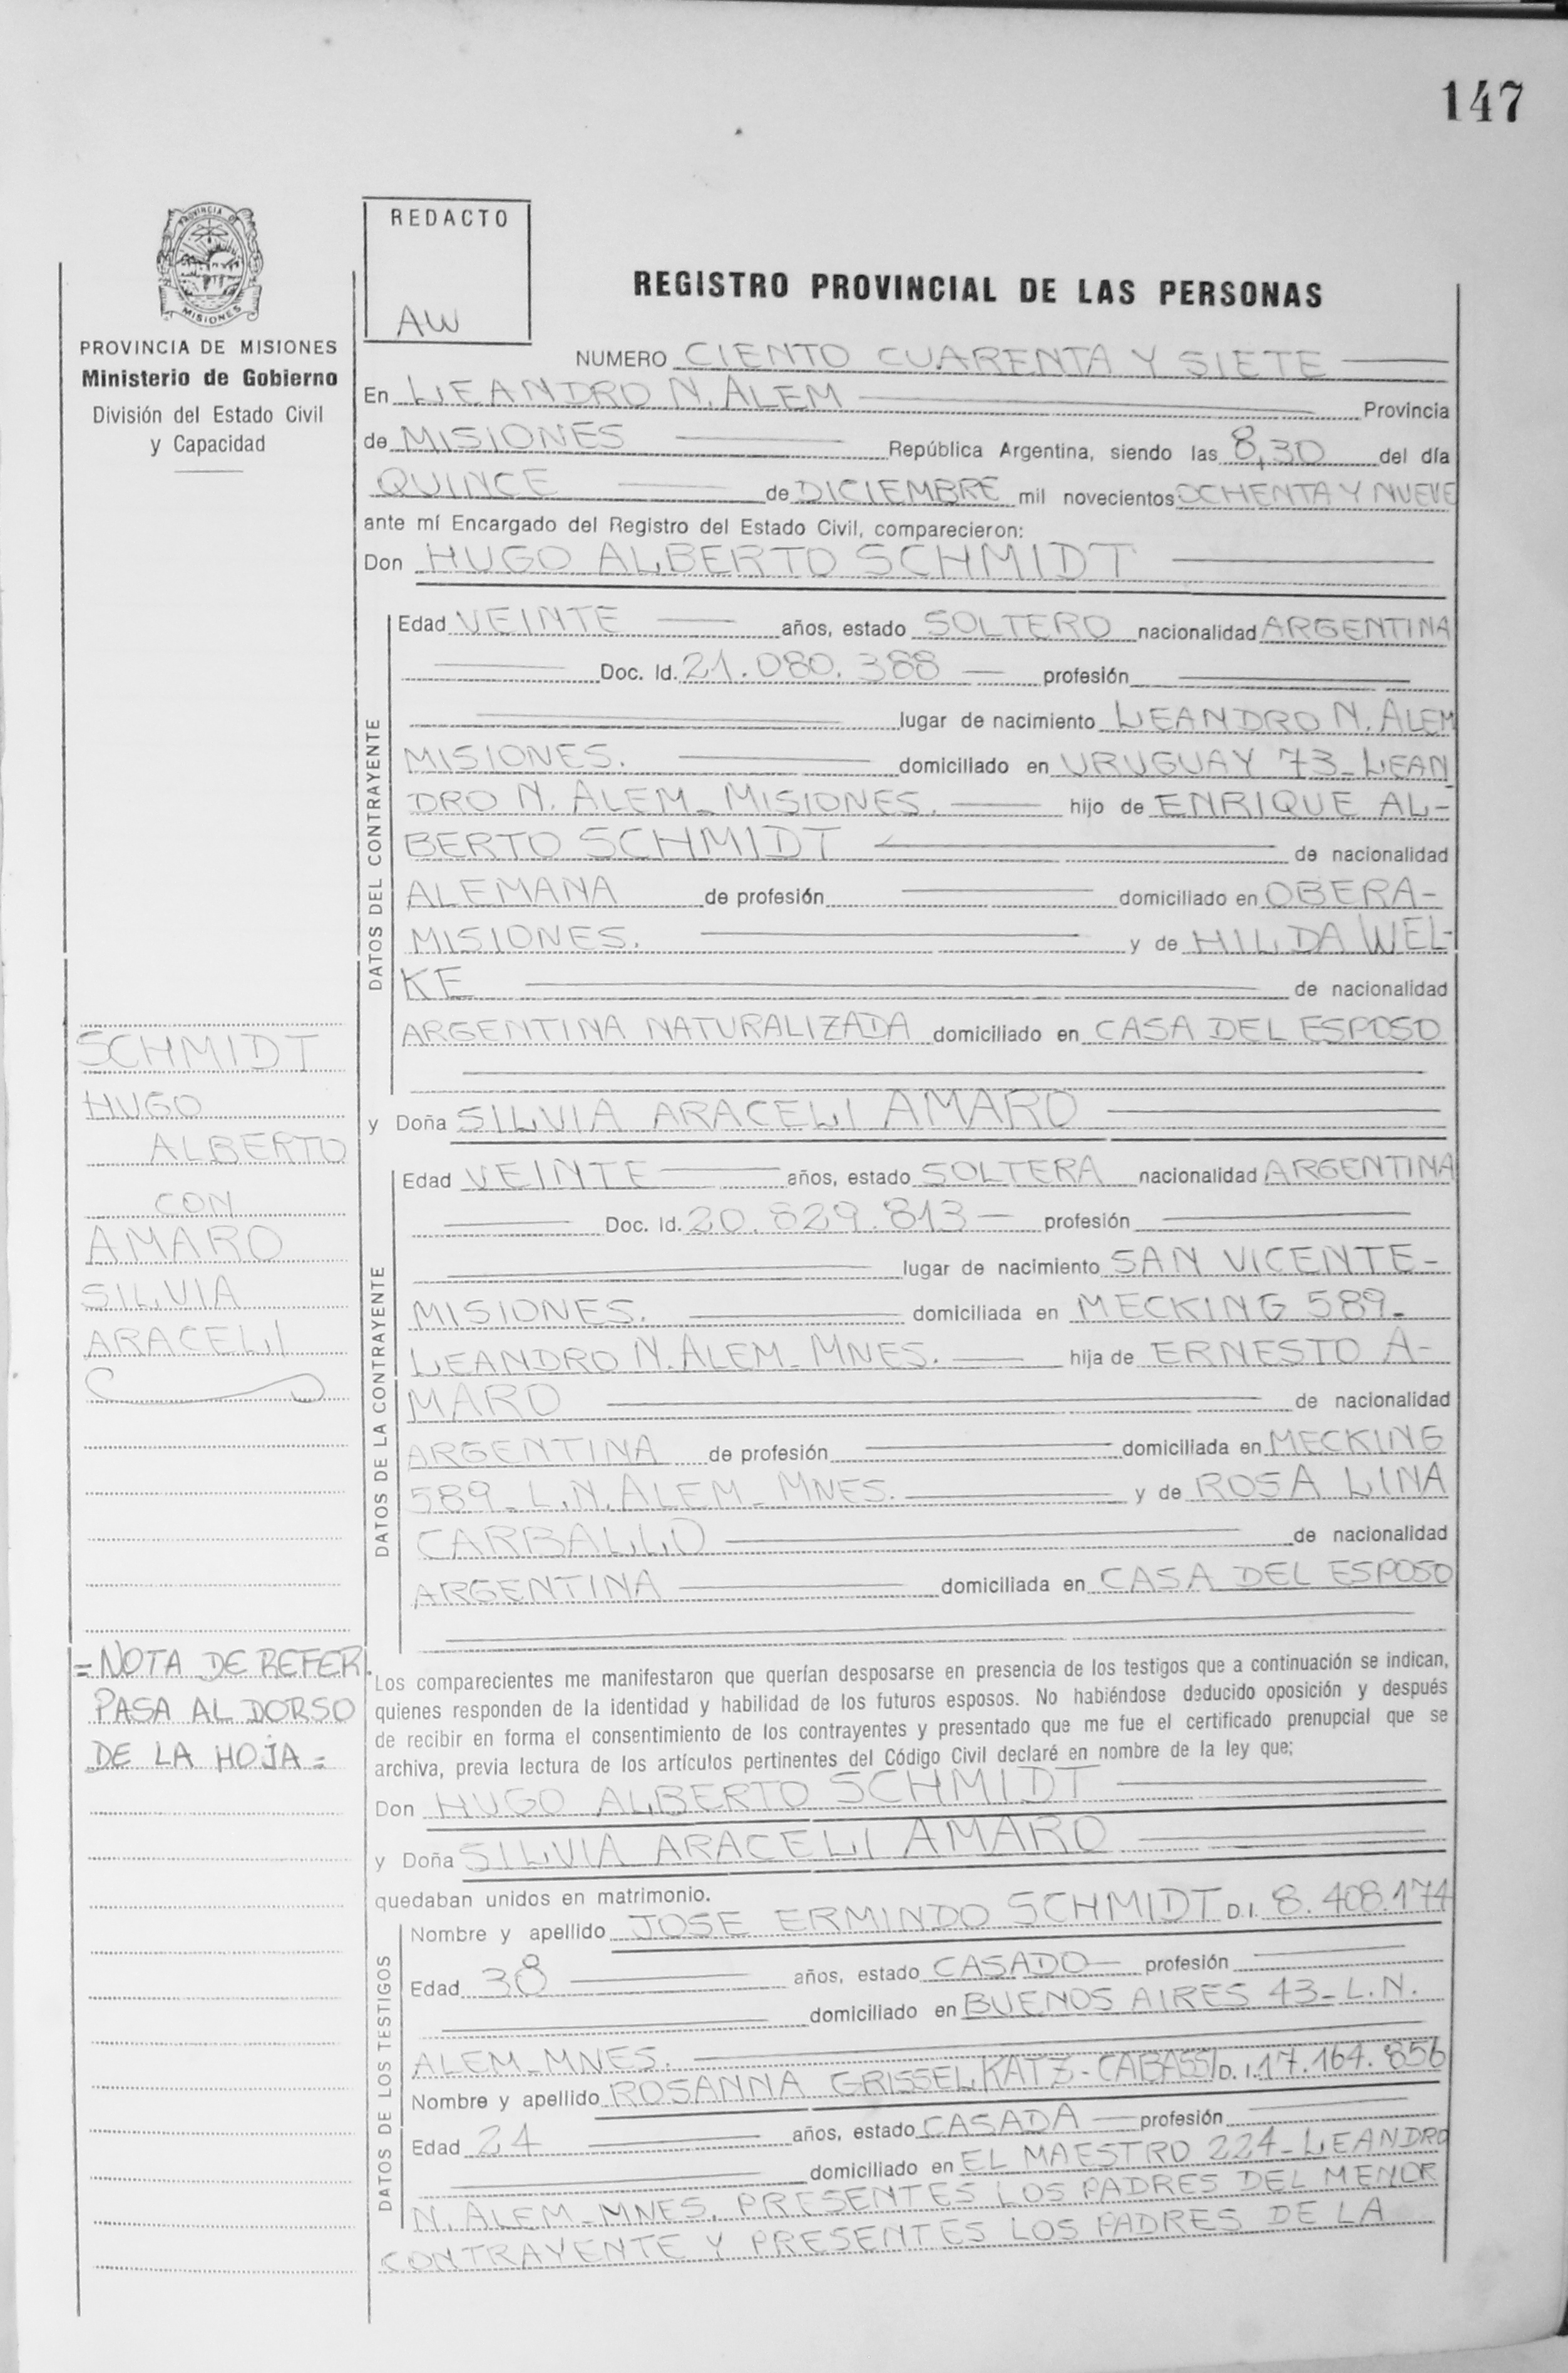 147
PROVINCIA DE
MISIONES
PROVINCIA DE MISIONES
Ministerio de Gobierno
División del Estado Civil
y Capacidad
REDACTO
AW
REGISTRO PROVINCIAL DE LAS PERSONAS
NUMERO CIENTO CUARENTA Y SIETE
En LEANDRO N. ALEM Provincia
de MISIONES República Argentina, siendo las 8,30 del día
QUINCE de DICIEMBRE mil novecientos OCHENTA Y NUEVE
ante mí Encargado del Registro del Estado Civil, comparecieron:
Don HUGO ALBERTO SCHMIDT
DATOS DEL CONTRAYENTE
Edad VEINTE años, estado SOLTERO nacionalidad ARGENTINA
Doc. Id. 21.080.388 profesión
lugar de nacimiento LEANDRO N. ALEM
MISIONES. domiciliado en URUGUAY 73_LEAN
DRO N. ALEM_MISIONES. hijo de ENRIQUE AL-
BERTO SCHMIDT de nacionalidad
ALEMANA de profesión domiciliado en OBERA-
MISIONES. y de HILDA WEL-
KE de nacionalidad
ARGENTINA NATURALIZADA domiciliado en CASA DEL ESPOSO
y Doña SILVIA ARACELI AMARO
DATOS DE LA CONTRAYENTE
Edad VEINTE años, estado SOLTERA nacionalidad ARGENTINA
Doc. Id. 20.829.813 profesión
lugar de nacimiento SAN VICENTE-
MISIONES. domiciliada en MECKING 589_
LEANDRO N. ALEM_MNES. hija de ERNESTO A-
MARO de nacionalidad
ARGENTINA de profesión domiciliada en MECKING
589_L.N. ALEM_MNES. y de ROSA LINA
CARBALLO de nacionalidad
ARGENTINA domiciliada en CASA DEL ESPOSO
SCHMIDT
HUGO
ALBERTO
CON
AMARO
SILVIA
ARACELI
=NOTA DE REFER.
PASA AL DORSO
DE LA HOJA=
Los comparecientes me manifestaron que querían desposarse en presencia de los testigos que a continuación se indican,
quienes responden de la identidad y habilidad de los futuros esposos. No habiéndose deducido oposición y después
de recibir en forma el consentimiento de los contrayentes y presentado que me fue el certificado prenupcial que se
archiva, previa lectura de los artículos pertinentes del Código Civil declaré en nombre de la ley que;
Don HUGO ALBERTO SCHMIDT
y Doña SILVIA ARACELI AMARO
quedaban unidos en matrimonio.
DATOS DE LOS TESTIGOS
Nombre y apellido JOSE ERMINDO SCHMIDT D.I. 8.408.174
Edad 38 años, estado CASADO profesión
domiciliado en BUENOS AIRES 43_L.N.
ALEM_MNES.
Nombre y apellido ROSANNA GRISSEL KATZ-CABASSI D.I. 17.164.856
Edad 24 años, estado CASADA profesión
domiciliado en EL MAESTRO 224_LEANDRO
N. ALEM_MNES. PRESENTES LOS PADRES DEL MENOR
CONTRAYENTE Y PRESENTES LOS PADRES DE LA